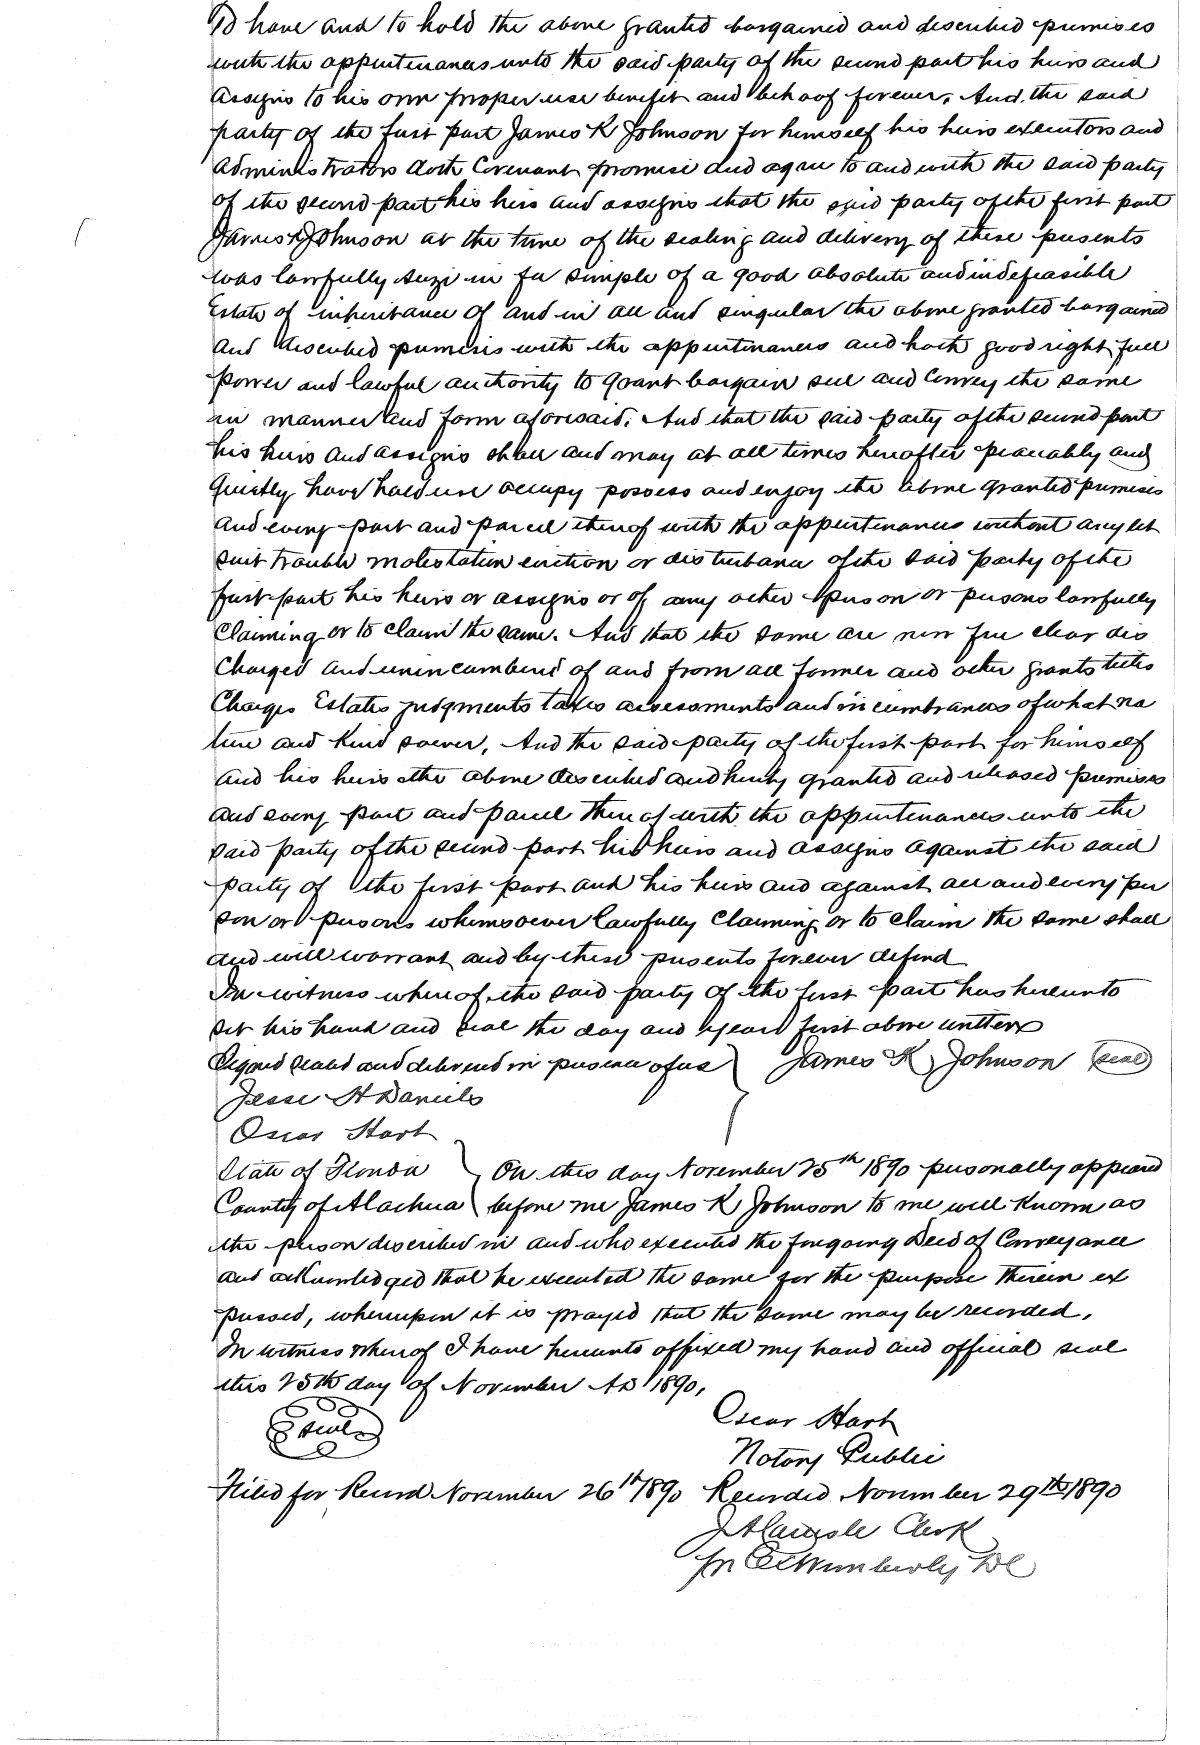 To have and to hold the above granted bargained and described premises
with the appurtenances unto the said party of the second part his heirs and
assigns to his own proper use benefit and behoof forever. And the said
party of the first part James K Johnson for himself his heirs executors and
administrators doth Covenant promise and agree to and with the said party
of the second part his heirs and assigns that the said party of the first part
James K Johnson at the time of the sealing and delivery of these presents
was lawfully seized in fee simple of a good absolute and indefeasible
Estate of inheritance of and in all and singular the above granted bargained
and described premises with the appurtenances and hath good right full
power and lawful authority to grant bargain sell and Convey the same
in manner and form aforesaid. And that the said party of the second part
his heirs and assigns shall and may at all times hereafter peaceably and
Quietly have hold use occupy possess and enjoy the above granted premises
and every part and parcel thereof with the appurtenances without any let
suit trouble molestation eviction or disturbance of the said party of the
first part his heirs or assigns or of any other person or persons lawfully
Claiming or to claim the same. And that the same are now free clear dis
Charged and unincumbered of and from all former and other grants titles
Charges Estates judgments taxes assessments and incumbrances of what na
ture and Kind soever, And the said party of the first part for himself
and his heirs the above described and hereby granted and released premises
and every part and parcel thereof with the appurtenances unto the
said party of the second part his heirs and assigns against the said
party of the first part and his heirs and against all and every per
son or persons whomsoever lawfully Claiming or to claim the same shall
and will warrant and by these presents forever defend
In witness whereof the said party of the first part has hereunto
set his hand and seal the day and year first above written
Signed sealed and delivered in presence of us } James K Johnson (seal)
Jesse H Daniels
Oscar Hart
State of Florida } On this day November 25th 1890 personally appeared
County of Alachua } before me James K Johnson to me well Known as
the person described in and who executed the foregoing Deed of Conveyance
and acknowledged that he executed the same for the purpose therein ex
pressed, whereupon it is prayed that the same may be recorded.
In witness whereof I have hereunto affixed my hand and official seal
this 25th day of November AD 1890,
Oscar Hart
seal
Notary Public
Filed for Record November 26th 1890 Recorded November 29th 1890
J A Carlisle Clerk
Wimberly DC